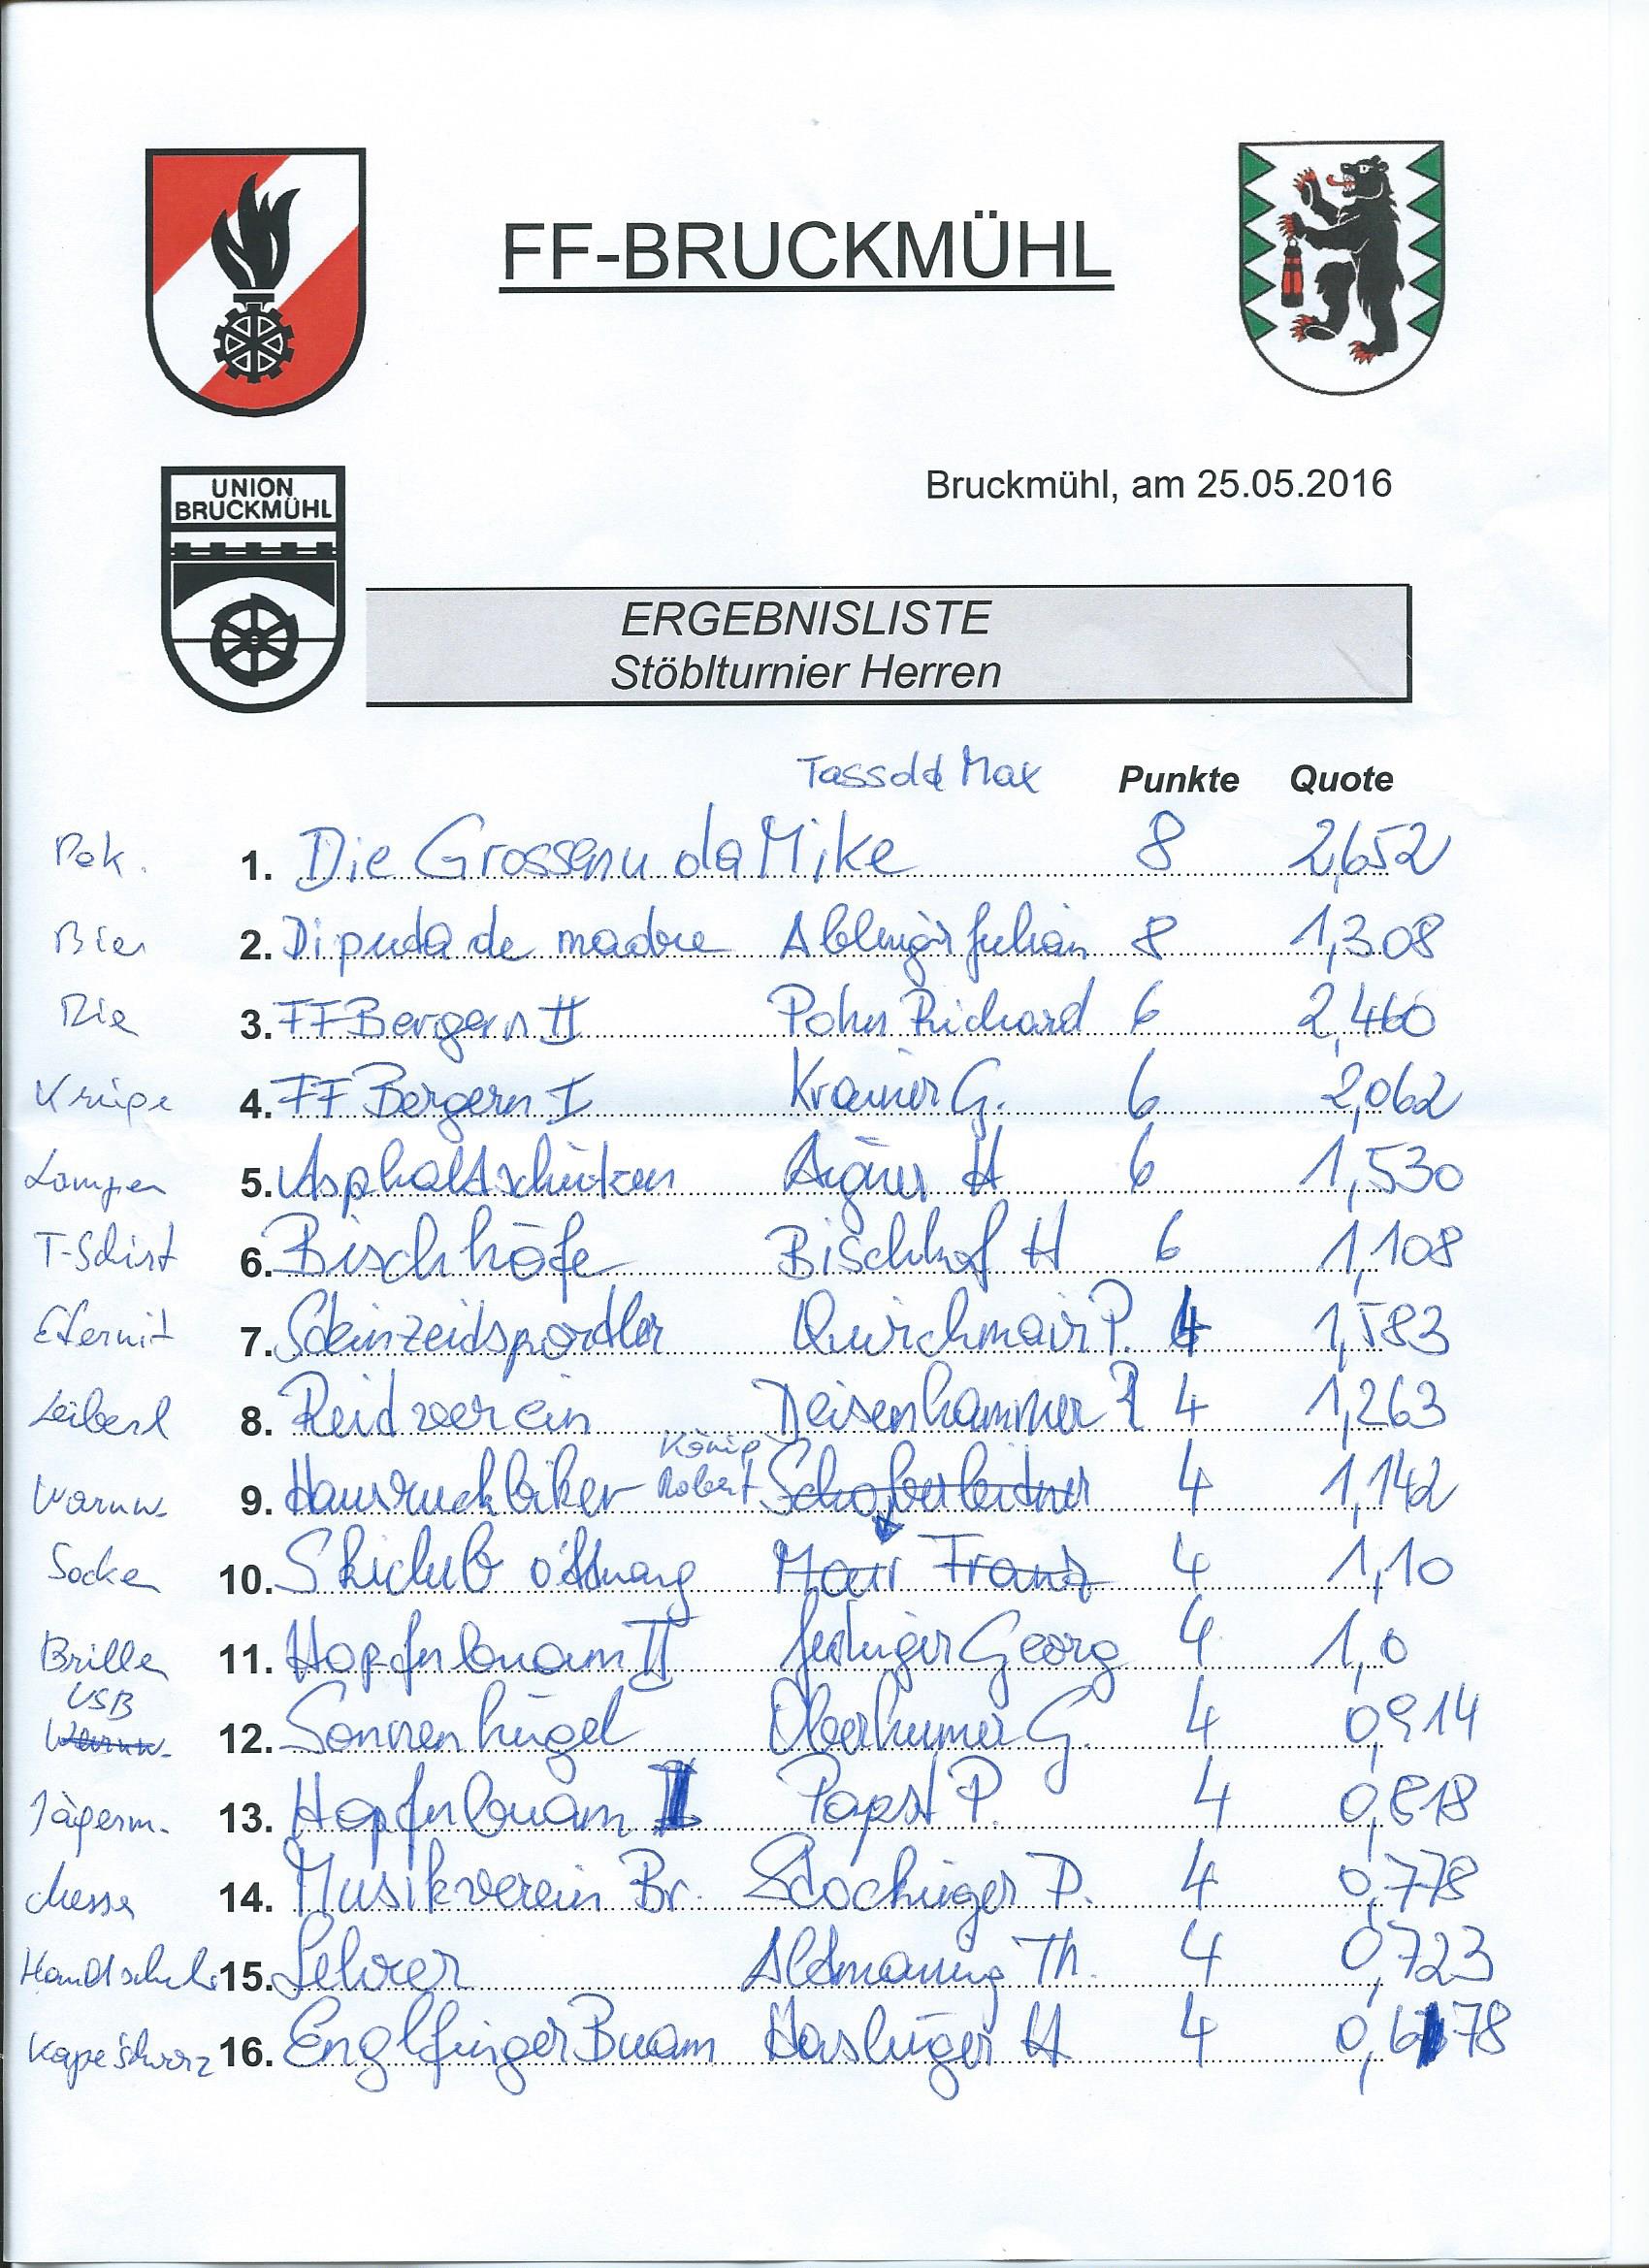 FF-BRUCKMÜHL
UNION
BRUCKMÜHL
Bruckmühl, am 25.05.2016
ERGEBNISLISTE
Stöblturnier Herren
Max Punkte Quote
1. Die Grossen u da Mike 8 2,652
Bier 2. Di puda de madre Julian 8 1,308
3. FF Bergern II Pohn Richard 6 2,460
4. FF Bergern I Kramer G. 6 2,062
Lampen 5. Asphaltschützen Aigner H 6 1,530
T-Schirt 6. Bischhöfe Bischhof H 6 1,108
Eternit 7. Steinzeitsportler Quirchmair P. 4 1,583
Leiberl 8. Reitverein Deisenhammer 4 1,263
König
Warnw. 9. Hausruckbiker Robert Schoberleitner 4 1,142
Socken 10. Skiclub Ottnang Mair Franz 4 1,10
Brillen 11. Hopfnbuam II Georg 4 1,0
USB
Warnw. 12. Sonnenhügel Oberhumer G. 4 0,914
Jägerm. 13. Hopfnbuam I Papst P. 4 0,818
Messer 14. Musikverein Br. Stochinger D. 4 0,778
Handschuh 15. Lehrer Altmaning Th. 4 0,723
Kape Schwarz 16. Englfinger Buam Haslinger H 4 0,678